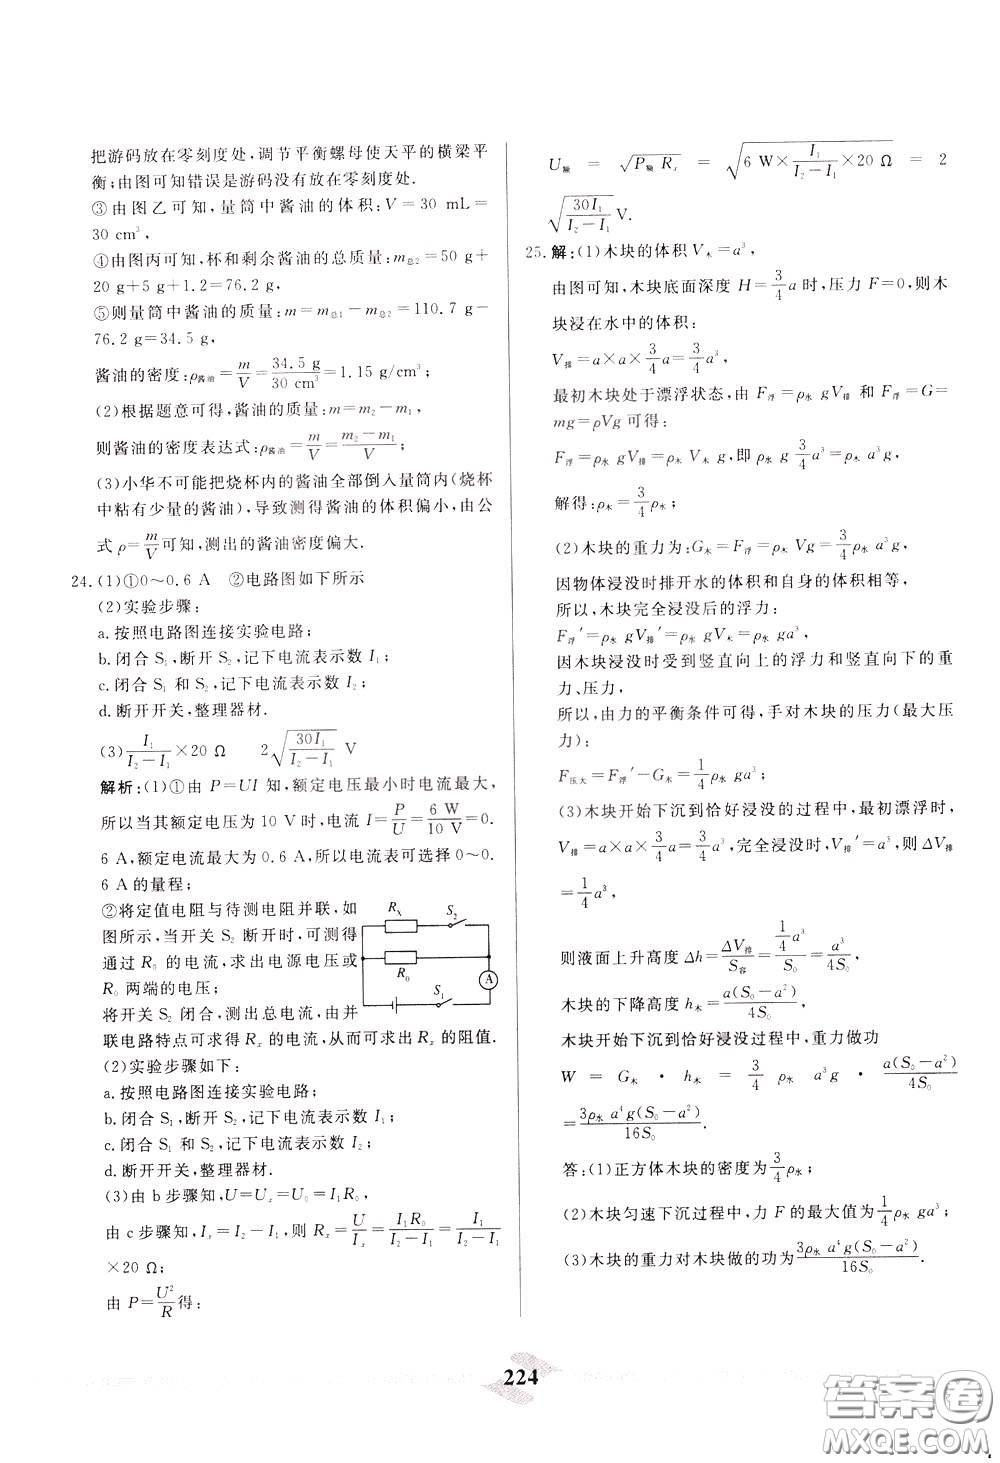 把游码放在零刻度处,调节平衡螺母使天平的横梁平
衡;由图可知错误是游码没有放在零刻度处.
③由图乙可知,量筒中酱油的体积:V=30 mL=
30 cm³,
④由图丙可知,杯和剩余酱油的总质量:m总2=50 g+
20 g+5 g+1.2=76.2 g,
⑤则量筒中酱油的质量:m=m总1-m总2=110.7 g-
76.2 g=34.5 g,
酱油的密度:ρ酱油=m/V=34.5 g/30 cm³=1.15 g/cm³;
(2)根据题意可得,酱油的质量:m=m₂-m₁,
则酱油的密度表达式:ρ酱油=m/V=(m₂-m₁)/V;
(3)小华不可能把烧杯内的酱油全部倒入量筒(烧杯
中粘有少量的酱油),导致测得酱油的体积偏小,由公
式 ρ=m/V可知,测出的酱油密度偏大.
24.(1)①0~0.6 A ②电路图如下所示
(2)实验步骤:
a.按照电路图连接实验电路;
b.闭合 S₁,断开 S₂,记下电流表示数 I₁;
c.闭合 S₁ 和 S₂,记下电流表示数 I₂;
d.断开开关,整理器材.
(3)I₁/(I₂-I₁)×20 Ω 2√(30I₁/(I₂-I₁)) V
解析:(1)①由 P=UI 知,额定电压最小时电流最大,
所以当其额定电压为 10 V 时,电流 I=P/U=6 W/10 V=0.
6 A,额定电流最大为 0.6 A,所以电流表可选择 0~0.
6 A 的量程;
②将定值电阻与待测电阻并联,如
图所示,当开关 S₂ 断开时,可测得
通过 R₀ 的电流,求出电源电压或
R₀ 两端的电压;
将开关 S₂ 闭合,测出总电流,由并
RX S₂
R₀ A
S₁
联电路特点可求得 Rx 的电流,从而可求出 Rx 的阻值.
(2)实验步骤如下:
a.按照电路图连接实验电路;
b.闭合 S₁,断开 S₂,记下电流表示数 I₁;
c.闭合 S₁ 和 S₂,记下电流表示数 I₂;
d.断开开关,整理器材.
(3)由 b 步骤知,U=Ux=U₀=I₁R₀,
由 c 步骤知,Ix=I₂-I₁,则 Rx=U/Ix=I₁R₀/(I₂-I₁)=I₁/(I₂-I₁)
×20 Ω;
由 P=U²/R得:
U额 = √(P额 Rx) = √(6 W×I₁/(I₂-I₁)×20 Ω) = 2
√(30I₁/(I₂-I₁)) V.
25.解:(1)木块的体积 V木=a³,
由图可知,木块底面深度 H=3/4 a 时,压力 F=0,则木
块浸在水中的体积:
V排=a×a×3/4 a=3/4 a³,
最初木块处于漂浮状态,由 F浮=ρ水 gV排 和 F浮=G=
mg=ρVg 可得:
F浮=ρ水 gV排=ρ木 V木 g,即 ρ水 g 3/4 a³=ρ木 a³g,
解得:ρ木=3/4 ρ水;
(2)木块的重力为:G木=F浮=ρ木 Vg=3/4 ρ水 a³g,
因物体浸没时排开水的体积和自身的体积相等,
所以,木块完全浸没后的浮力:
F浮′=ρ水 gV排′=ρ水 gV木=ρ水 ga³,
因木块浸没时受到竖直向上的浮力和竖直向下的重
力、压力,
所以,由力的平衡条件可得,手对木块的压力(最大压
力):
F压大=F浮′-G木=1/4 ρ水 ga³;
(3)木块开始下沉到恰好浸没的过程中,最初漂浮时,
V排=a×a×3/4 a=3/4 a³,完全浸没时,V排′=a³,则 ΔV排
=1/4 a³,
则液面上升高度 Δh=ΔV排/S容=(1/4 a³)/S₀=a³/4S₀,
木块的下降高度 h木=a(S₀-a²)/4S₀,
木块开始下沉到恰好浸没过程中,重力做功
W = G木 · h木 = 3/4 ρ水 a³g · a(S₀-a²)/4S₀
=3ρ水 a⁴g(S₀-a²)/16S₀.
答:(1)正方体木块的密度为3/4 ρ水;
(2)木块匀速下沉过程中,力 F 的最大值为1/4 ρ水 ga³;
(3)木块的重力对木块做的功为3ρ水 a⁴g(S₀-a²)/16S₀.
224
答案圈
MXQE.COM